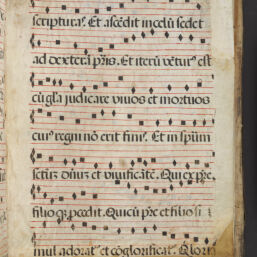 scripturas. Et ascēdit in celū sedet
ad dexterā pr̄is. Et iterū vētur⁹ est
cū gl̄a judicare viuos et mortuos
cui⁹ regni nō erit finis. Et in sp̄um
sctū⁊ dn̄um et viuificātē. Qui ex pr̄e
filio q⁊ p̄cedit. Qui cū pr̄e et filio si
mul adorat⁊ et cōglorificat⁊. Q